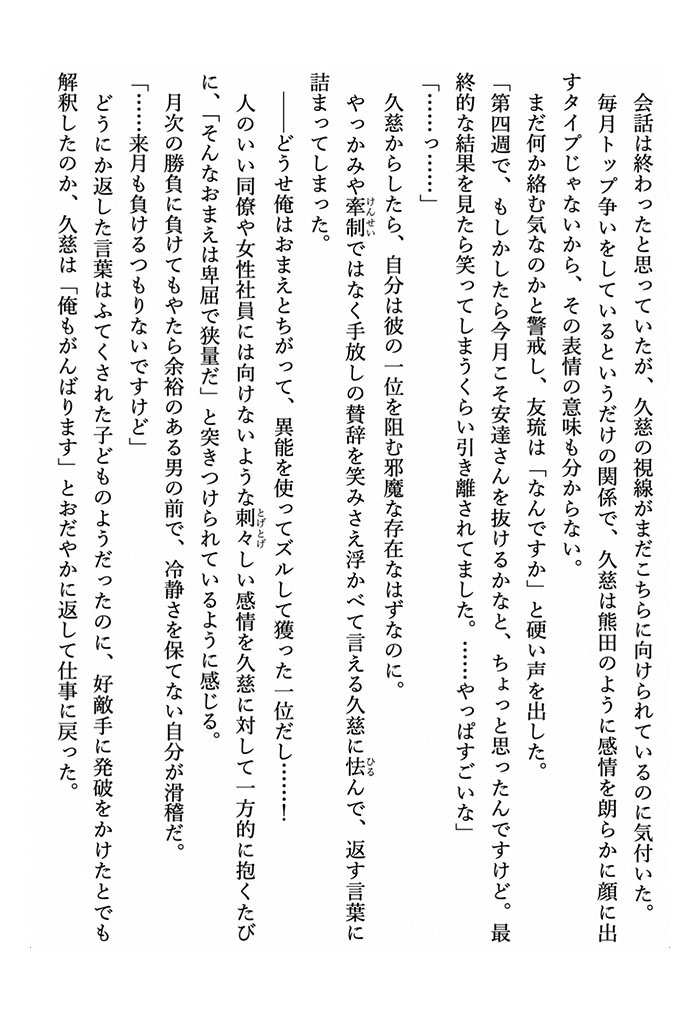 会話は終わったと思っていたが、久慈の視線がまだこちらに向けられているのに気付いた。
毎月トップ争いをしているというだけの関係で、久慈は熊田のように感情を朗らかに顔に出
すタイプじゃないから、その表情の意味も分からない。
まだ何か絡む気なのかと警戒し、友琉は「なんですか」と硬い声を出した。
「第四週で、もしかしたら今月こそ安達さんを抜けるかなと、ちょっと思ったんですけど。最
終的な結果を見たら笑ってしまうくらい引き離されてました。……やっぱすごいな」
「……っ……」
久慈からしたら、自分は彼の一位を阻む邪魔な存在なはずなのに。
やっかみや牽制ではなく手放しの賛辞を笑みさえ浮かべて言える久慈に怯んで、返す言葉に
詰まってしまった。
――どうせ俺はおまえとちがって、異能を使ってズルして獲った一位だし……！
人のいい同僚や女性社員には向けないような刺々しい感情を久慈に対して一方的に抱くたび
に、「そんなおまえは卑屈で狭量だ」と突きつけられているように感じる。
月次の勝負に負けてもやたら余裕のある男の前で、冷静さを保てない自分が滑稽だ。
「……来月も負けるつもりないですけど」
どうにか返した言葉はふてくされた子どものようだったのに、好敵手に発破をかけたとでも
解釈したのか、久慈は「俺もがんばります」とおだやかに返して仕事に戻った。